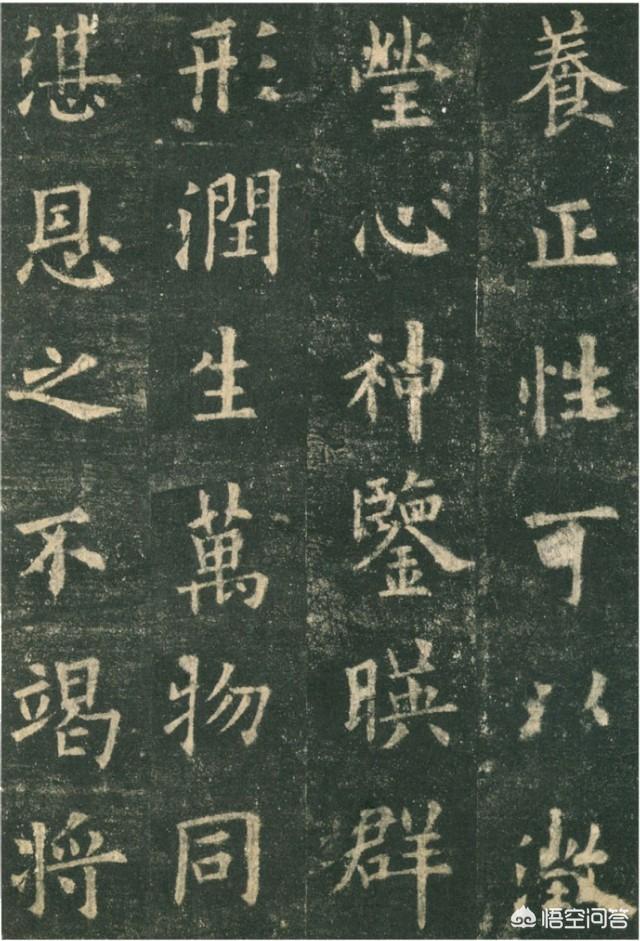 養正性可以澂
瑩心神鑒暎群
形潤生萬物同
湛恩之不竭将
悟空问答